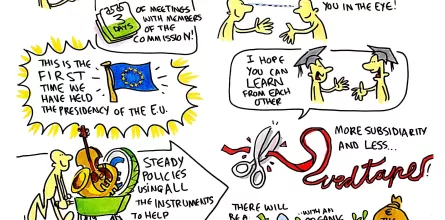 3 DAYS
OF MEETINGS
WITH MEMBERS
OF THE
COMMISSION!
YOU IN THE EYE!
THIS IS THE
FIRST
TIME WE
HAVE HELD
THE PRESIDENCY OF THE E.U.
I HOPE
YOU CAN
LEARN
FROM EACH
OTHER
STEADY
POLICIES
USING ALL
THE INSTRUMENTS
TO HELP
MORE SUBSIDIARITY
AND LESS...
red tape!
THERE WILL
BE A
...WITH AN
ORGANIC